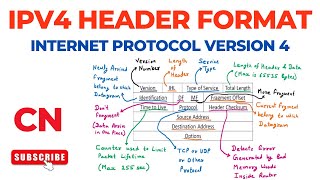 IPV4 HEADER FORMAT
INTERNET PROTOCOL VERSION 4
Newly Arrived
Fragment
belong to which
Datagram
Version
Number
Length
of
Header
Service
Type
Length of Header & Data
(Max is 65535 Bytes)
More Fragment
Version
HL
Type of Service
Total Length
Identification
DF
MF
Fragment Offset
Time to Live
Protocol
Header Checksum
Source Address
Destination Address
Options
Don't
Fragment
(Data Arrive
in the Piece)
Current Fragment
belong to which
Datagram
CN
SUBSCRIBE
Counter used to Limit
Packet Lifetime
(Max 255 sec)
TCP or UDP
or Other
Protocol
Detects Error
Generated by Bad
Memory Words
Inside Router